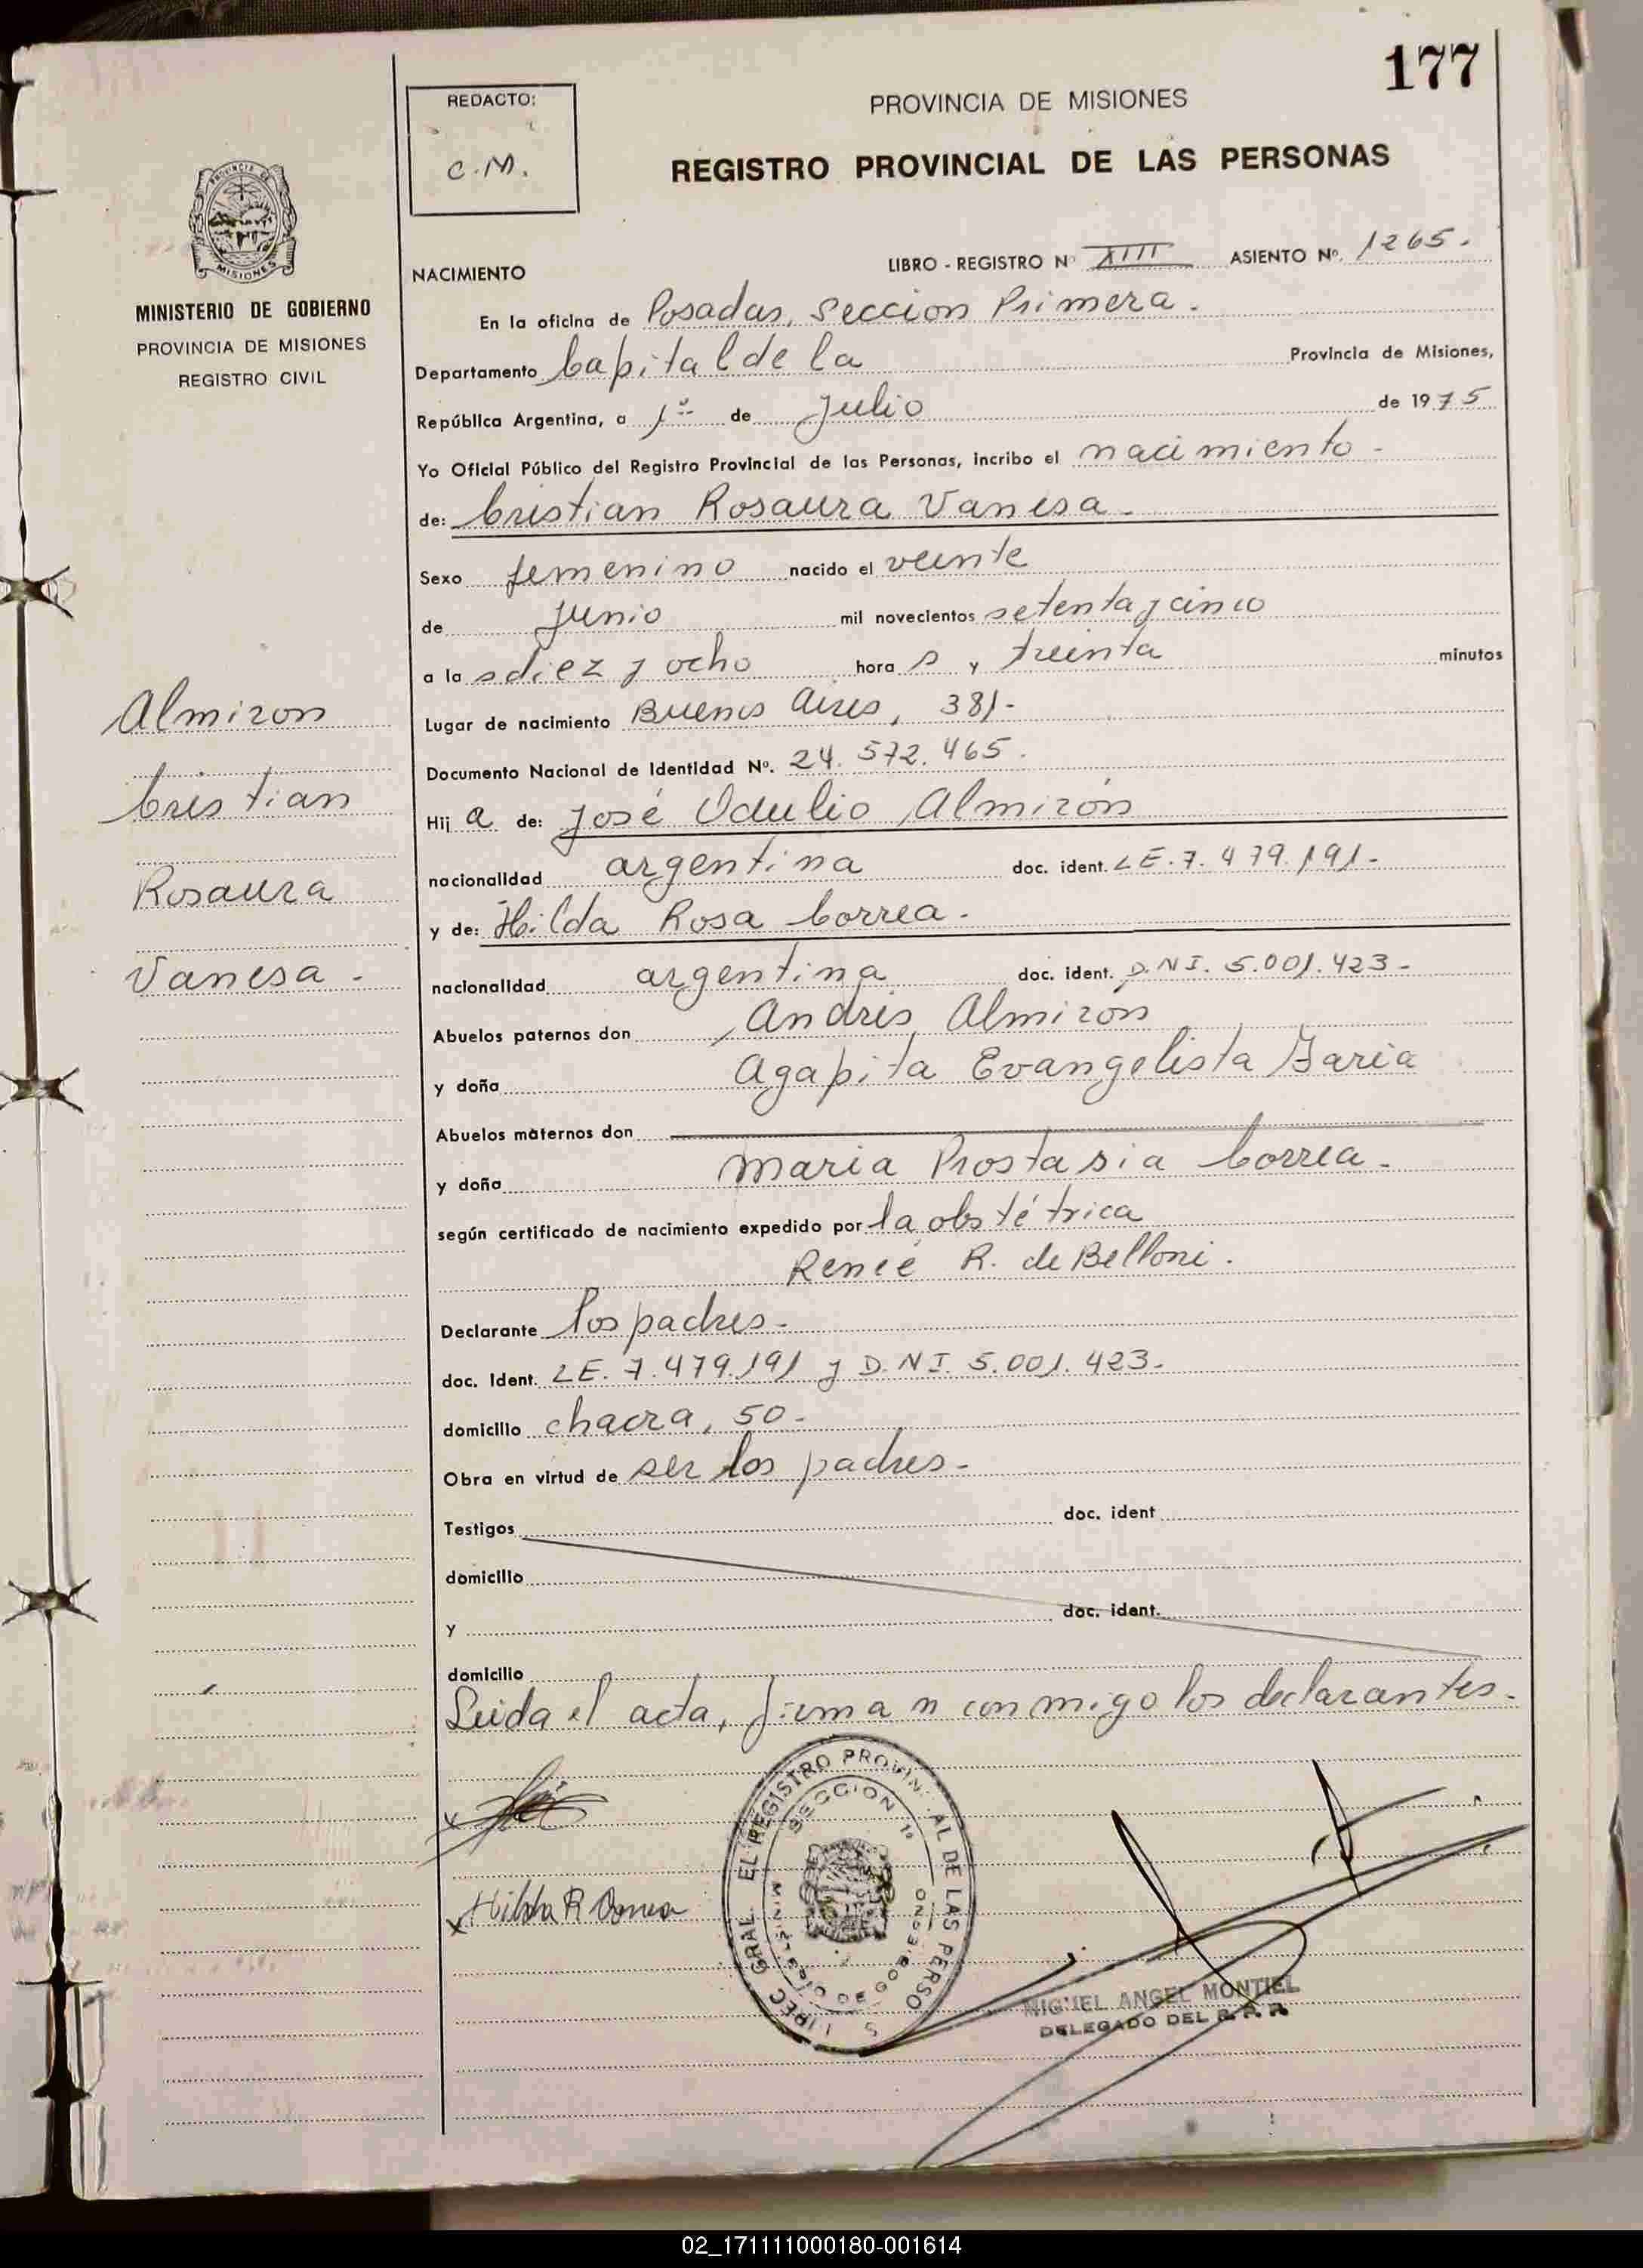 177
REDACTO:
C.M.
PROVINCIA DE MISIONES
REGISTRO PROVINCIAL DE LAS PERSONAS
PROVINCIA DE
MISIONES
MINISTERIO DE GOBIERNO
PROVINCIA DE MISIONES
REGISTRO CIVIL
NACIMIENTO
LIBRO - REGISTRO Nº XIII ASIENTO Nº. 1265.
En la oficina de Posadas, Seccion Primera.
Departamento Capital de la Provincia de Misiones,
República Argentina, a 1º de Julio de 1975
Yo Oficial Público del Registro Provincial de las Personas, incribo el nacimiento
de: Cristian Rosaura Vanesa
Sexo femenino nacido el veinte
de junio mil novecientos setenta y cinco
a las diez y ocho hora s y treinta minutos
Lugar de nacimiento Buenos Aires, 381-
Documento Nacional de Identidad Nº. 24.572.465.
Hij a de: José Odulio Almirón
nacionalidad argentina doc. ident. LE.7.479.191-
y de: Hilda Rosa Correa.
nacionalidad argentina doc. ident. D.N.I. 5.001.423-
Abuelos paternos don Andrés Almiron
y doña Agapita Evangelista Jaria
Abuelos maternos don
y doña Maria Prostasia Correa-
según certificado de nacimiento expedido por la obstétrica
Reneé R. de Belloni.
Declarante los padres-
doc. Ident. LE. 7.479.191 y D.N.I. 5.001.423-
domicilio chacra, 50-
Obra en virtud de ser los padres-
Testigos doc. ident
domicilio
y doc. ident.
domicilio
Leida el acta, firman conmigo los declarantes-
Almiron
Cristian
Rosaura
Vanesa-
x
x Hilda R Correa
GRAL. EL REGISTRO PROVIN AL DE LAS PERSO S
SECCION 1ª
MIGUEL ANGEL MONTIEL
DELEGADO DEL R. P. P.
02_171111000180-001614